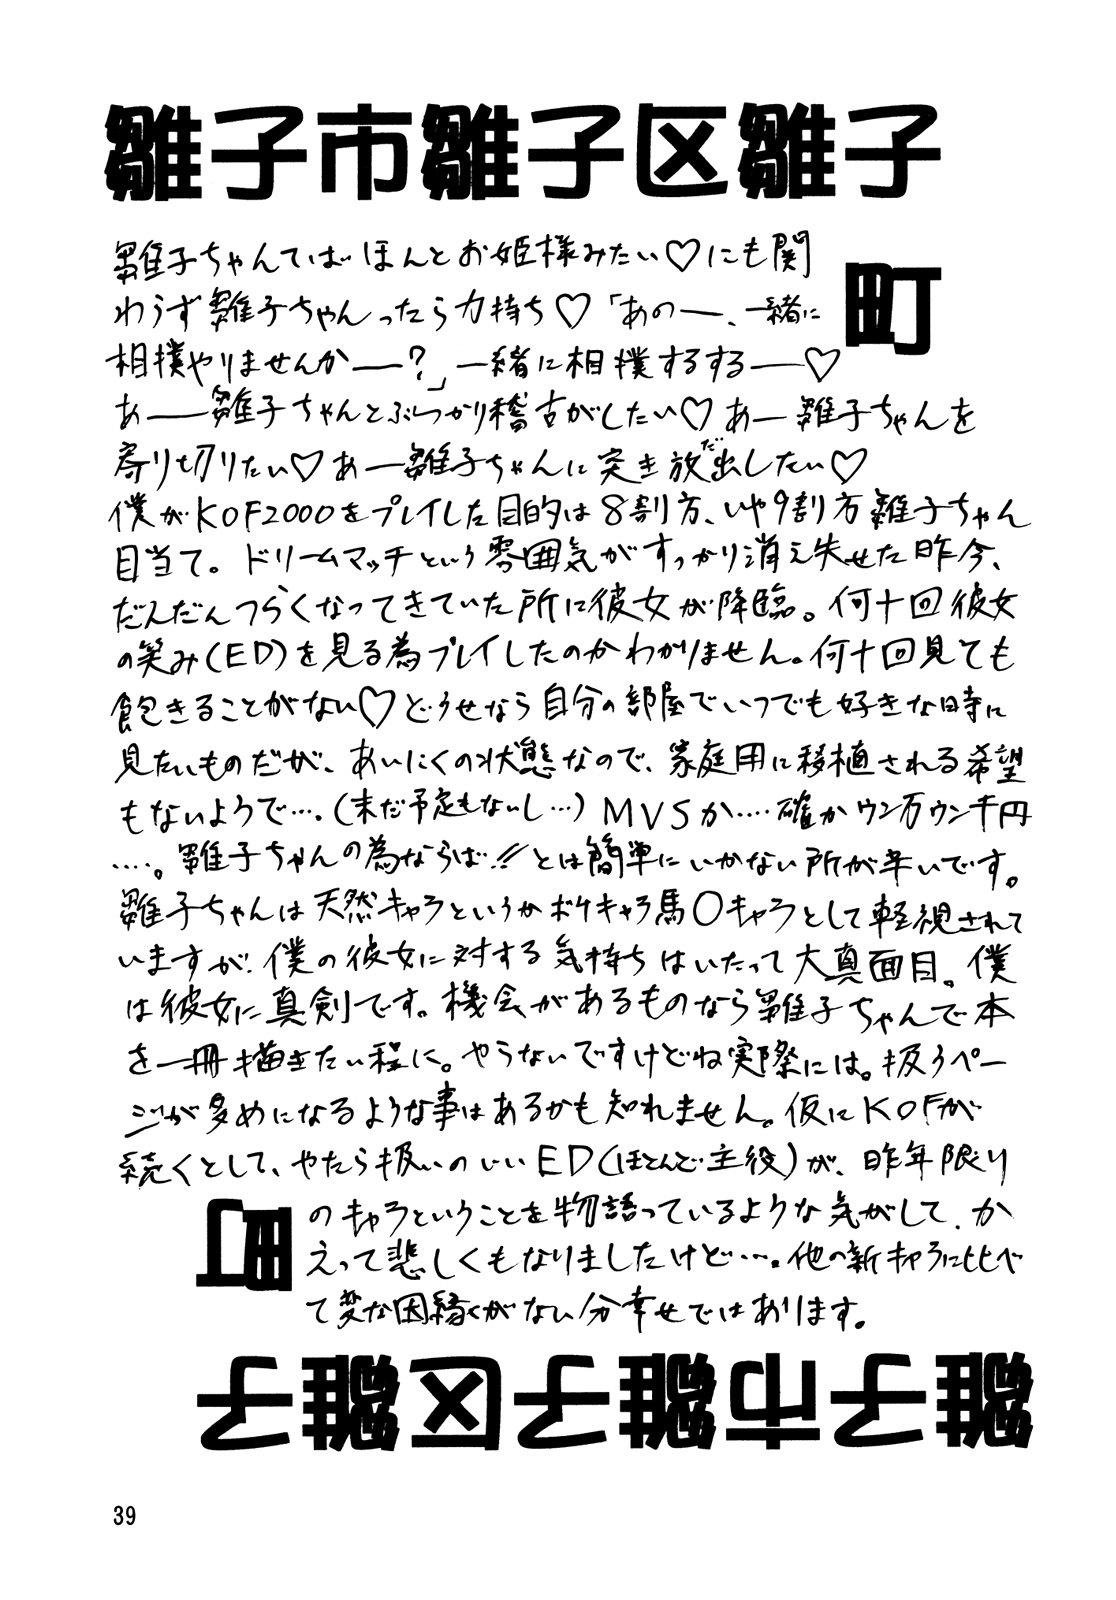 雛子市雛子区雛子
町
雛子ちゃんてばほんとお姫様みたい♡にも関
わらず雛子ちゃんったら力持ち♡「あのー、一緒に
相撲やりませんかー?」一緒に相撲するするー♡
あー雛子ちゃんとぶつかり稽古がしたい♡あー雛子ちゃんを
寄り切りたい♡あー雛子ちゃんに突き放出だしたい♡
僕がKOF2000をプレイした目的は8割方、いや9割方雛子ちゃん
目当て。ドリームマッチという雰囲気がすっかり消え失せた昨今、
だんだんつらくなってきていた所に彼女が降臨。何十回彼女
の笑み(ED)を見る為プレイしたのかわかりません。何十回見ても
飽きることがない♡どうせなら自分の部屋でいつでも好きな時に
見たいものだが、あいにくの状態なので、家庭用に移植される希望
もないようで…。(未だ予定もないし…)MVSか‥‥確かウン万ウン千円
‥‥。雛子ちゃんの為ならば!!とは簡単にいかない所が辛いです。
雛子ちゃんは天然キャラというかボケキャラ馬〇キャラとして軽視されて
いますが、僕の彼女に対する気持ちはいたって大真面目。僕
は彼女に真剣です。機会があるものなら雛子ちゃんで本
を一冊描きたい程に。やらないですけどね実際には。扱うペー
ジが多めになるような事はあるかも知れません。仮にKOFが
続くとして、やたら扱いのいいED(ほとんど主役)が、昨年限り
のキャラということを物語っているような気がして、か
えって悲しくもなりましたけど‥‥。他の新キャラに比べ
て変な因縁くがない分幸せではあります。
町
雛子市雛子区雛子
39